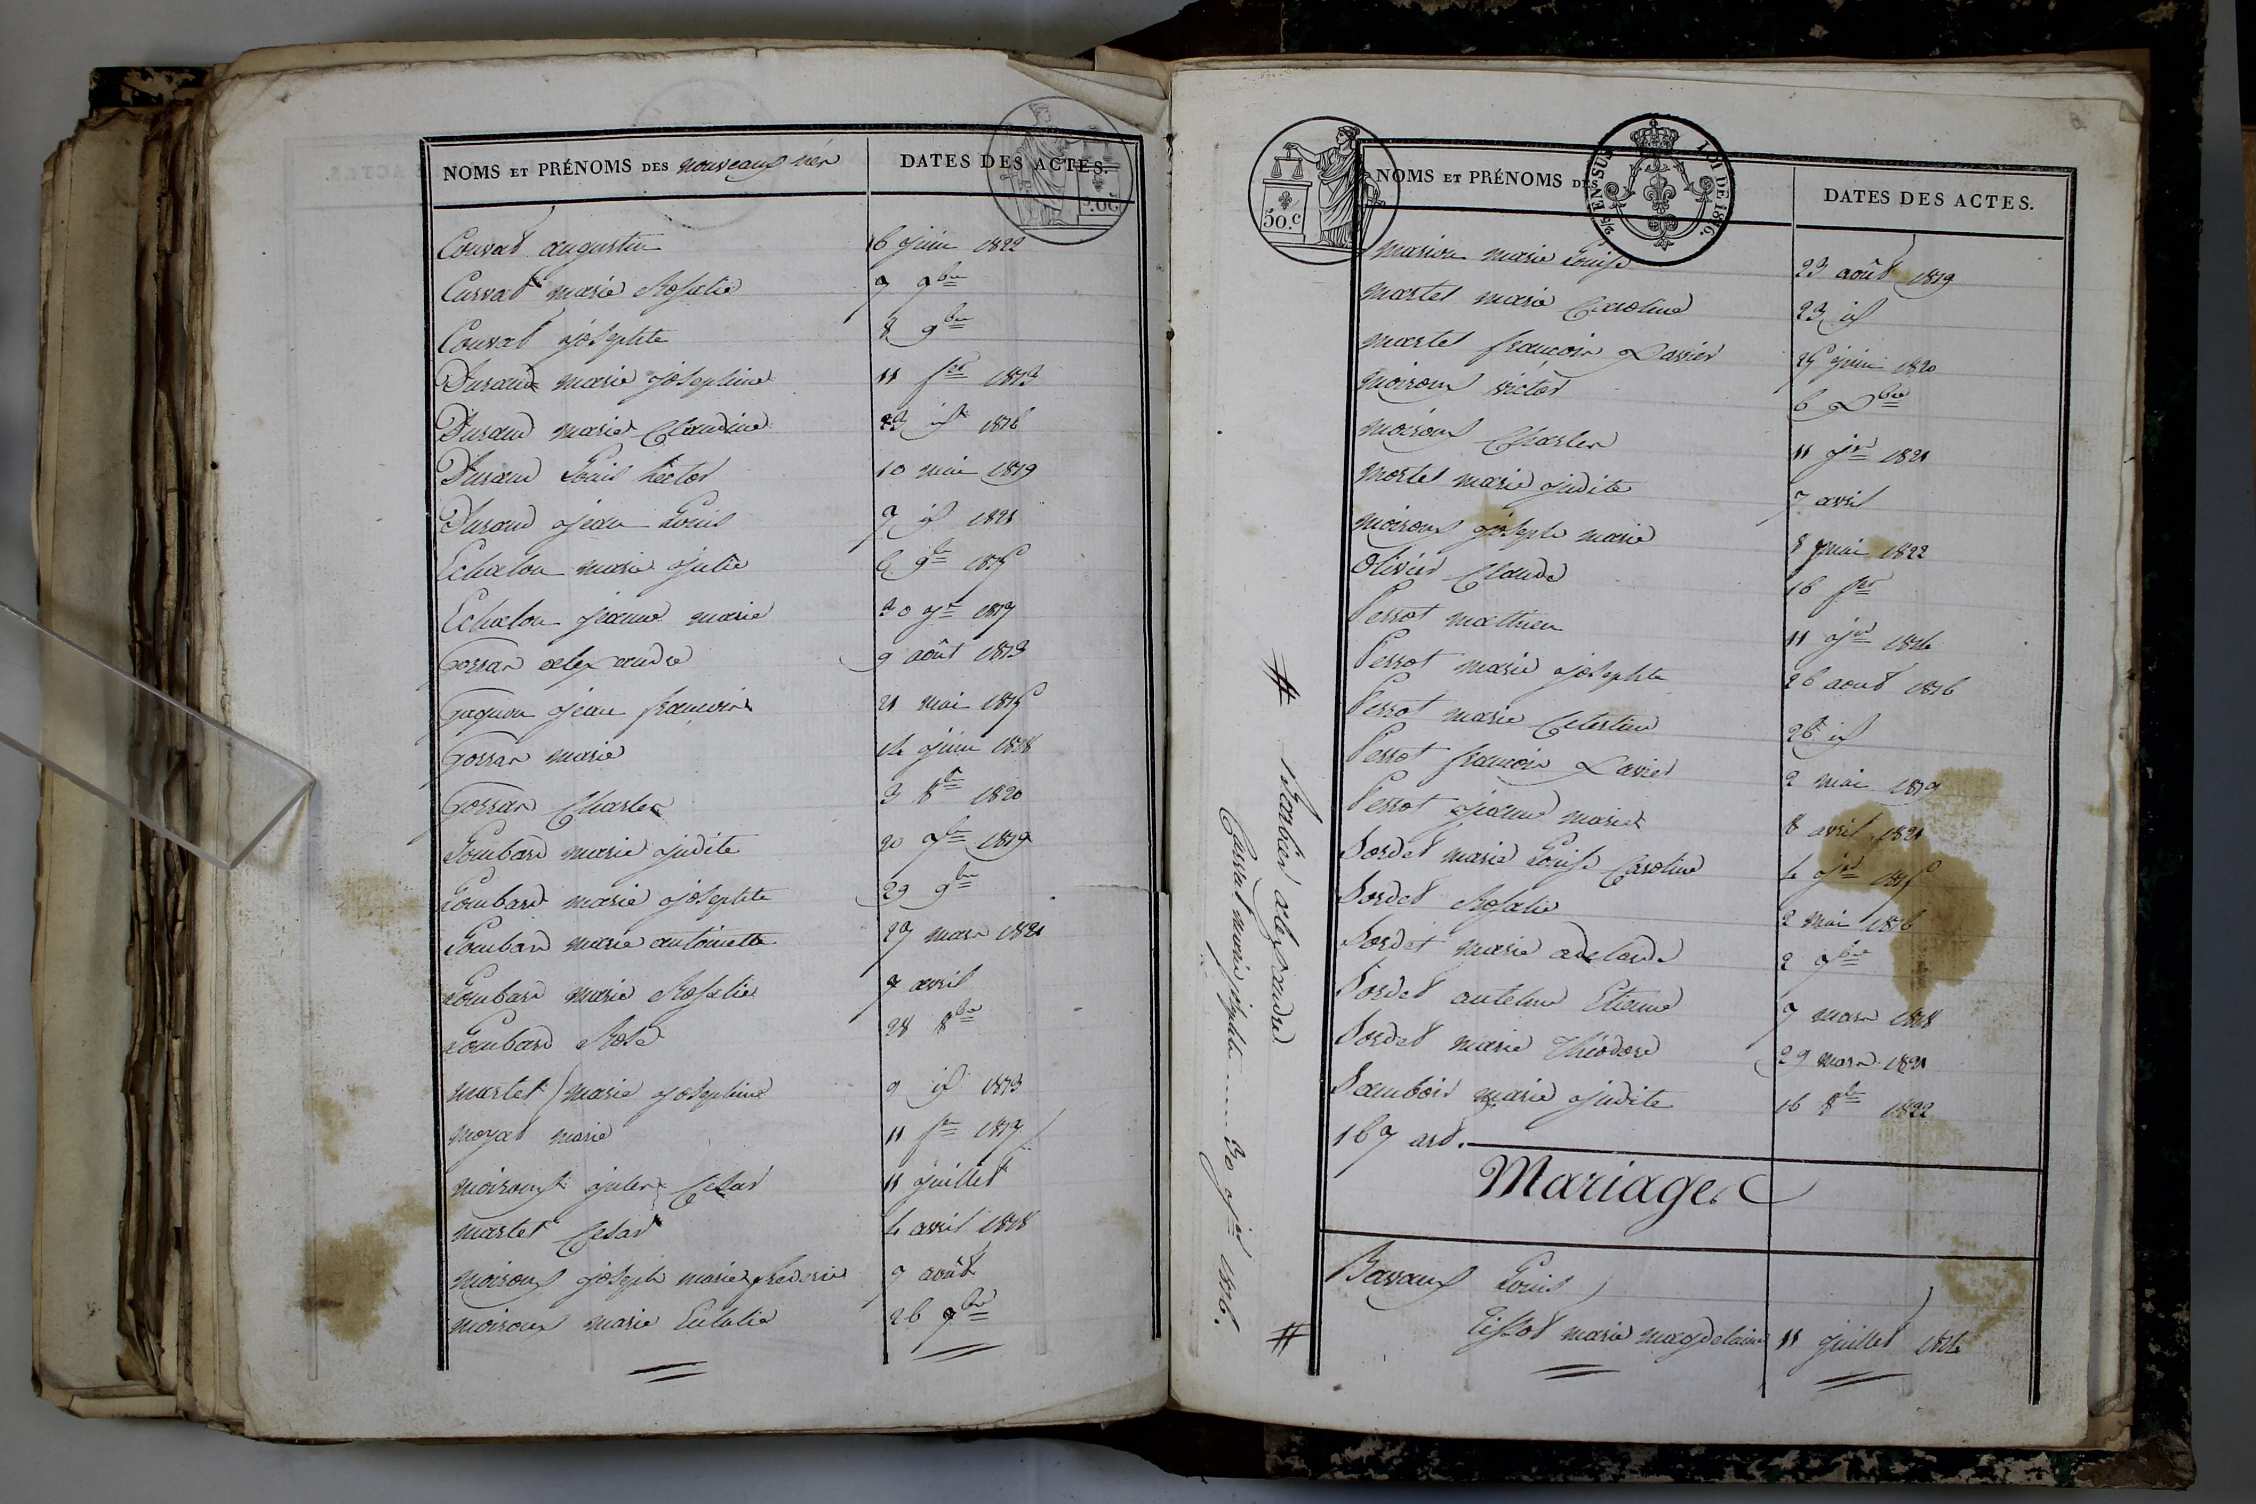 NOMS ET PRÉNOMS DES nouveaux nés DATES DES ACTES.
Couvat augustin 16 juin 1822
Curvat marie Rosalie 7 9bre
Couvat josephte 8 9bre
Durand marie josephine 11 fer 1813
Durand marie Claudine id 1816
Durand Louis hector 10 mai 1819
Durand jean Louis 7 id 1821
Echalon marie julie 6 9bre 1815
Echalon jeanne marie 30 jer 1817
Gorran alexandre 9 août 1813
Gagnon jean françois 21 mai 1815
Gorran marie 14 juin 1818
Gorran Charles 3 8bre 1820
Loubard marie judite 20 1819
Loubard marie josephte 29 9bre
Loubard marie antoinette 27 mars 1821
Loubard marie Rosalie 7 avril
Loubard Rose 28 8bre
martel marie josephine 9 id 1813
moyat marie 11 fer 1817
moiroux jules Cesar 11 juillet
martel Cesar 4 avril 1818
moiroux joseph marie frederic 7 août
moiroux marie Eulalie 26 9bre
50.c
EN SUS LOI DE 1816.
NOMS ET PRÉNOMS DES DATES DES ACTES.
marion marie Louise 23 août 1819
martel marie Caroline 23 id
martel françois Xavier 25 juin 1820
moiroux victor 6 Xbre
moiroux Charles 11 jer 1821
mortel marie judite 7 avril
moiroux joseph marie 8 mai 1822
Olivier Claude 16 fer
Perrot mathieu 11 jer 1814
Perrot marie josephte 26 aout 1816
Perrot marie Celestine 26 id
Perrot françois Xavier 2 mai 1819
Perrot jeanne marie 8 avril 1821
Sordet marie Louise Caroline 4 jer 1815
Sordet Rosalie 2 mai 1816
Sordet marie adelaide 2 7bre
Sordet antelme Etienne 7 mars 1818
Sordet marie Théodore 29 mars 1821
Sambois marie judite 16 8bre 1822
167 art.
Mariages
Bavoux Louis
Tissot marie magdelaine 11 juillet 1814
# Barbier alexandre
Carrat marie josephte 30 jer 1816. #